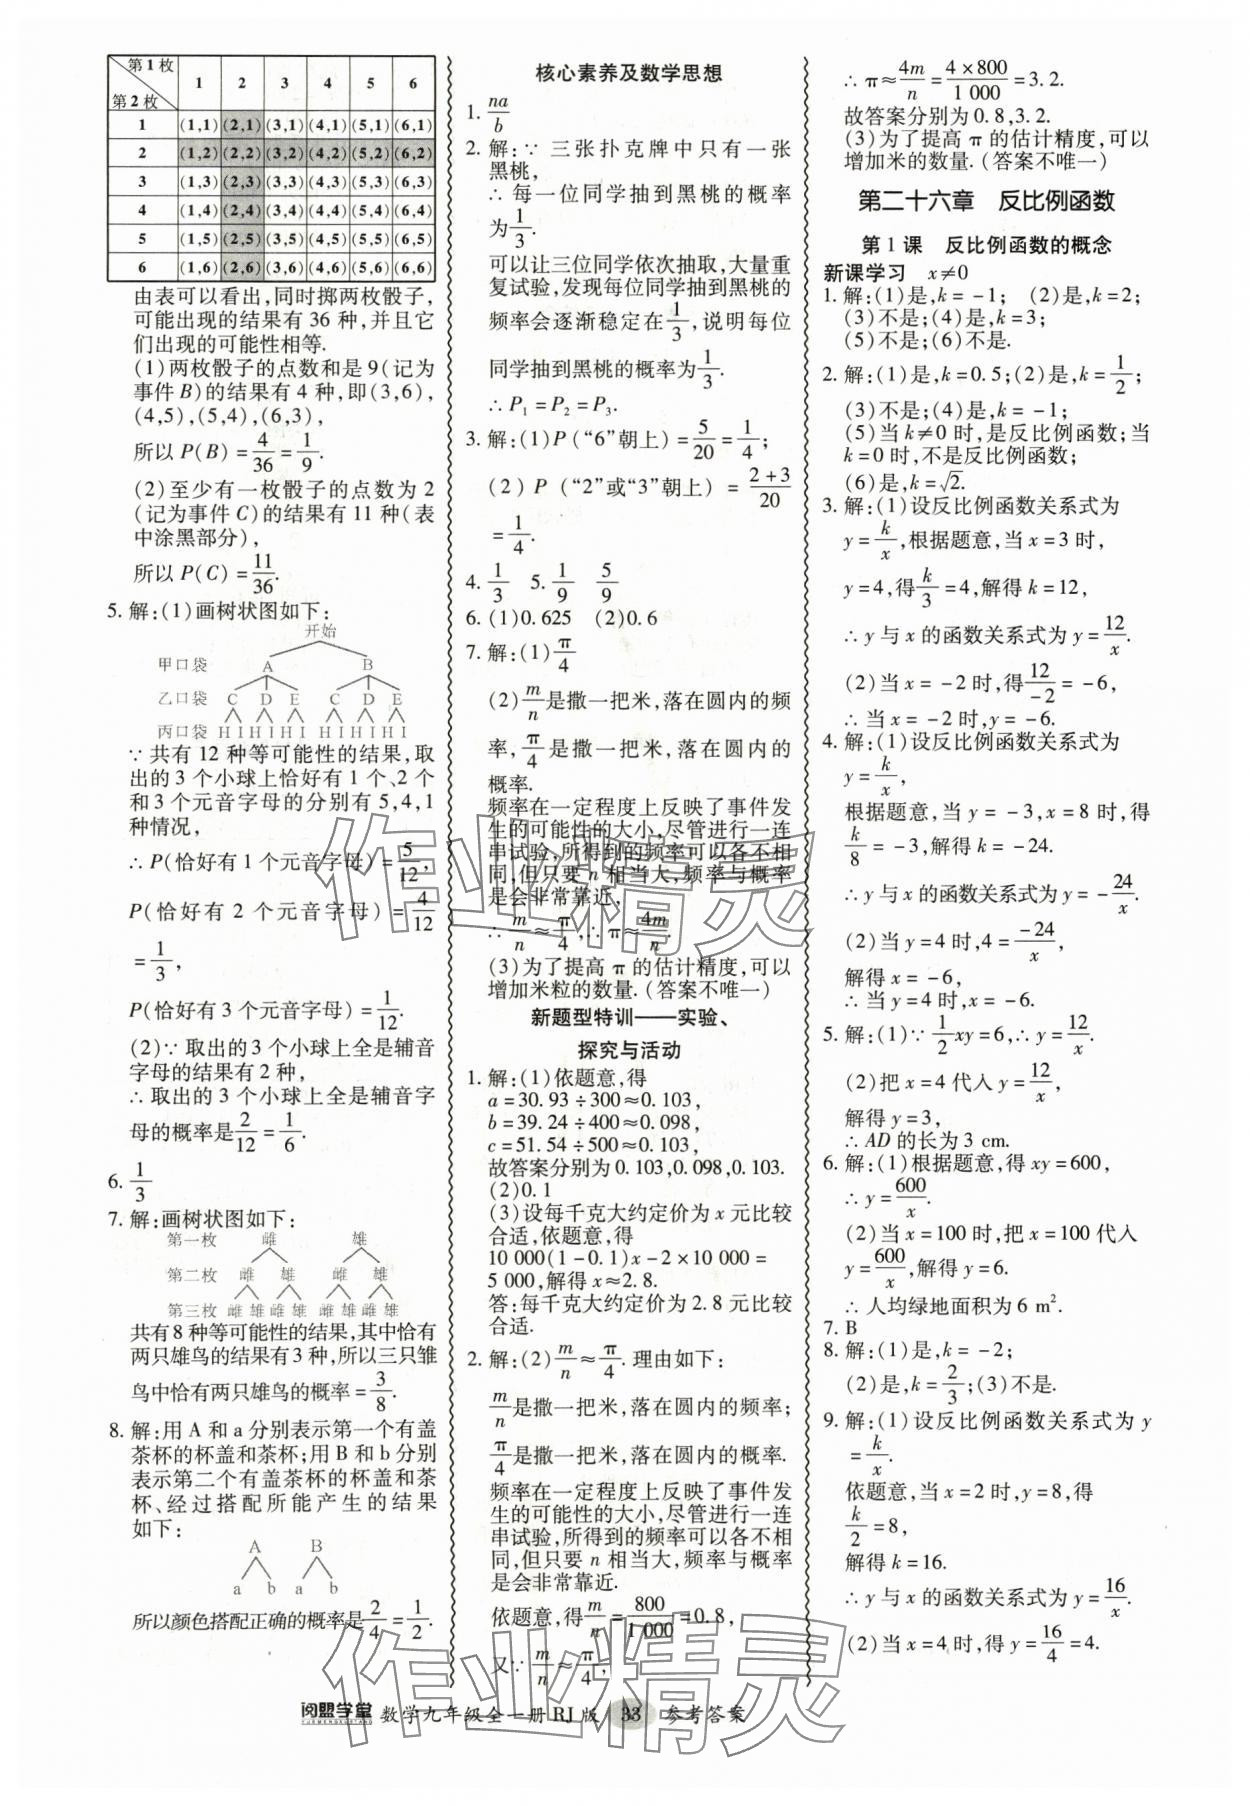 第1枚
第2枚
1 2 3 4 5 6
1 (1,1) (2,1) (3,1) (4,1) (5,1) (6,1)
2 (1,2) (2,2) (3,2) (4,2) (5,2) (6,2)
3 (1,3) (2,3) (3,3) (4,3) (5,3) (6,3)
4 (1,4) (2,4) (3,4) (4,4) (5,4) (6,4)
5 (1,5) (2,5) (3,5) (4,5) (5,5) (6,5)
6 (1,6) (2,6) (3,6) (4,6) (5,6) (6,6)
由表可以看出,同时掷两枚骰子,
可能出现的结果有36种,并且它
们出现的可能性相等.
(1)两枚骰子的点数和是9(记为
事件B)的结果有4种,即(3,6),
(4,5),(5,4),(6,3),
所以P(B)=4/36=1/9.
(2)至少有一枚骰子的点数为2
(记为事件C)的结果有11种(表
中涂黑部分),
所以P(C)=11/36.
5.解:(1)画树状图如下:
开始
甲口袋 A B
乙口袋 C D E C D E
丙口袋 H I H I H I H I H I H I
∵共有12种等可能性的结果,取
出的3个小球上恰好有1个、2个
和3个元音字母的分别有5,4,1
种情况,
∴P(恰好有1个元音字母)=5/12,
P(恰好有2个元音字母)=4/12
=1/3,
P(恰好有3个元音字母)=1/12.
(2)∵取出的3个小球上全是辅音
字母的结果有2种,
∴取出的3个小球上全是辅音字
母的概率是2/12=1/6.
6.1/3
7.解:画树状图如下:
第一枚 雌 雄
第二枚 雌 雄 雌 雄
第三枚 雌 雄 雌 雄 雌 雄 雌 雄
共有8种等可能性的结果,其中恰有
两只雄鸟的结果有3种,所以三只雏
鸟中恰有两只雄鸟的概率=3/8.
8.解:用A和a分别表示第一个有盖
茶杯的杯盖和茶杯;用B和b分别
表示第二个有盖茶杯的杯盖和茶
杯、经过搭配所能产生的结果
如下:
A B
a b a b
所以颜色搭配正确的概率是2/4=1/2.
核心素养及数学思想
1.na/b
2.解:∵三张扑克牌中只有一张
黑桃,
∴每一位同学抽到黑桃的概率
为1/3.
可以让三位同学依次抽取,大量重
复试验,发现每位同学抽到黑桃的
频率会逐渐稳定在1/3,说明每位
同学抽到黑桃的概率为1/3.
∴P₁=P₂=P₃.
3.解:(1)P(“6”朝上)=5/20=1/4;
(2)P(“2”或“3”朝上)=(2+3)/20
=1/4.
4.1/3 5.1/9 5/9
6.(1)0.625 (2)0.6
7.解:(1)π/4
(2)m/n是撒一把米,落在圆内的频
率,π/4是撒一把米,落在圆内的
概率.
频率在一定程度上反映了事件发
生的可能性的大小,尽管进行一连
串试验,所得到的频率可以各不相
同,但只要n相当大,频率与概率
是会非常靠近,
∴m/n≈π/4,∴π≈4m/n.
(3)为了提高π的估计精度,可以
增加米粒的数量.(答案不唯一)
新题型特训——实验、
探究与活动
1.解:(1)依题意,得
a=30.93÷300≈0.103,
b=39.24÷400≈0.098,
c=51.54÷500≈0.103,
故答案分别为0.103,0.098,0.103.
(2)0.1
(3)设每千克大约定价为x元比较
合适,依题意,得
10 000(1-0.1)x-2×10 000=
5 000,解得x≈2.8.
答:每千克大约定价为2.8元比较
合适.
2.解:(2)m/n≈π/4.理由如下:
m/n是撒一把米,落在圆内的频率;
π/4是撒一把米,落在圆内的概率.
频率在一定程度上反映了事件发
生的可能性的大小,尽管进行一连
串试验,所得到的频率可以各不相
同,但只要n相当大,频率与概率
是会非常靠近.
依题意,得m/n=800/1 000=0.8,
又∵m/n≈π/4,
∴π≈4m/n=4×800/1 000=3.2.
故答案分别为0.8,3.2.
(3)为了提高π的估计精度,可以
增加米的数量.(答案不唯一)
第二十六章 反比例函数
第1课 反比例函数的概念
新课学习 x≠0
1.解:(1)是,k=-1; (2)是,k=2;
(3)不是;(4)是,k=3;
(5)不是;(6)不是.
2.解:(1)是,k=0.5;(2)是,k=1/2;
(3)不是;(4)是,k=-1;
(5)当k≠0时,是反比例函数;当
k=0时,不是反比例函数;
(6)是,k=√2.
3.解:(1)设反比例函数关系式为
y=k/x,根据题意,当x=3时,
y=4,得k/3=4,解得k=12,
∴y与x的函数关系式为y=12/x.
(2)当x=-2时,得12/-2=-6,
∴当x=-2时,y=-6.
4.解:(1)设反比例函数关系式为
y=k/x,
根据题意,当y=-3,x=8时,得
k/8=-3,解得k=-24.
∴y与x的函数关系式为y=-24/x.
(2)当y=4时,4=-24/x,
解得x=-6,
∴当y=4时,x=-6.
5.解:(1)∵1/2xy=6,∴y=12/x.
(2)把x=4代入y=12/x,
解得y=3,
∴AD的长为3 cm.
6.解:(1)根据题意,得xy=600,
∴y=600/x.
(2)当x=100时,把x=100代入
y=600/x,解得y=6.
∴人均绿地面积为6 m².
7.B
8.解:(1)是,k=-2;
(2)是,k=2/3;(3)不是.
9.解:(1)设反比例函数关系式为y
=k/x
依题意,当x=2时,y=8,得
k/2=8,
解得k=16.
∴y与x的函数关系式为y=16/x.
(2)当x=4时,得y=16/4=4.
阅盟学堂 数学九年级全一册RJ版 33 参考答案
作业精灵
作业精灵